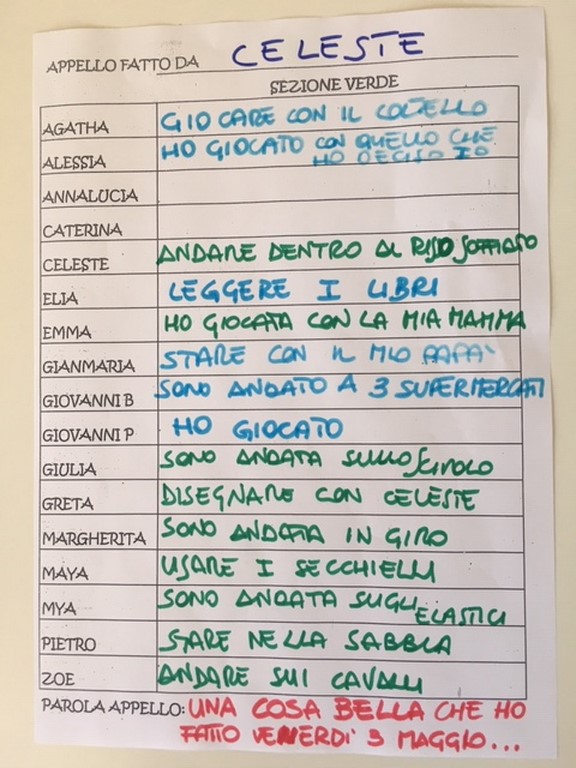 APPELLO FATTO DA CELESTE
SEZIONE VERDE
AGATHA GIOCARE CON IL COLTELLO
ALESSIA HO GIOCATO CON QUELLO CHE
HO DECISO IO
ANNALUCIA
CATERINA
CELESTE ANDARE DENTRO AL RISO SOFFIATO
ELIA LEGGERE I LIBRI
EMMA HO GIOCATA CON LA MIA MAMMA
GIANMARIA STARE CON IL MIO PAPA'
GIOVANNI B SONO ANDATO A 3 SUPERMERCATI
GIOVANNI P HO GIOCATO
GIULIA SONO ANDATA SULLO SCIVOLO
GRETA DISEGNARE CON CELESTE
MARGHERITA SONO ANDATA IN GIRO
MAYA USARE I SECCHIELLI
MYA SONO ANDATA SUGLI ELASTICI
PIETRO STARE NELLA SABBIA
ZOE ANDARE SUI CAVALLI
PAROLA APPELLO: UNA COSA BELLA CHE HO
FATTO VENERDI' 3 MAGGIO...